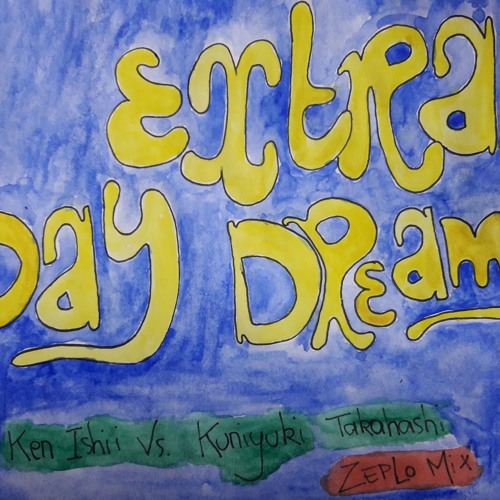 Extra
Day Dream
Ken Ishii Vs. Kuniyuki Takahashi
ZEPLO Mix